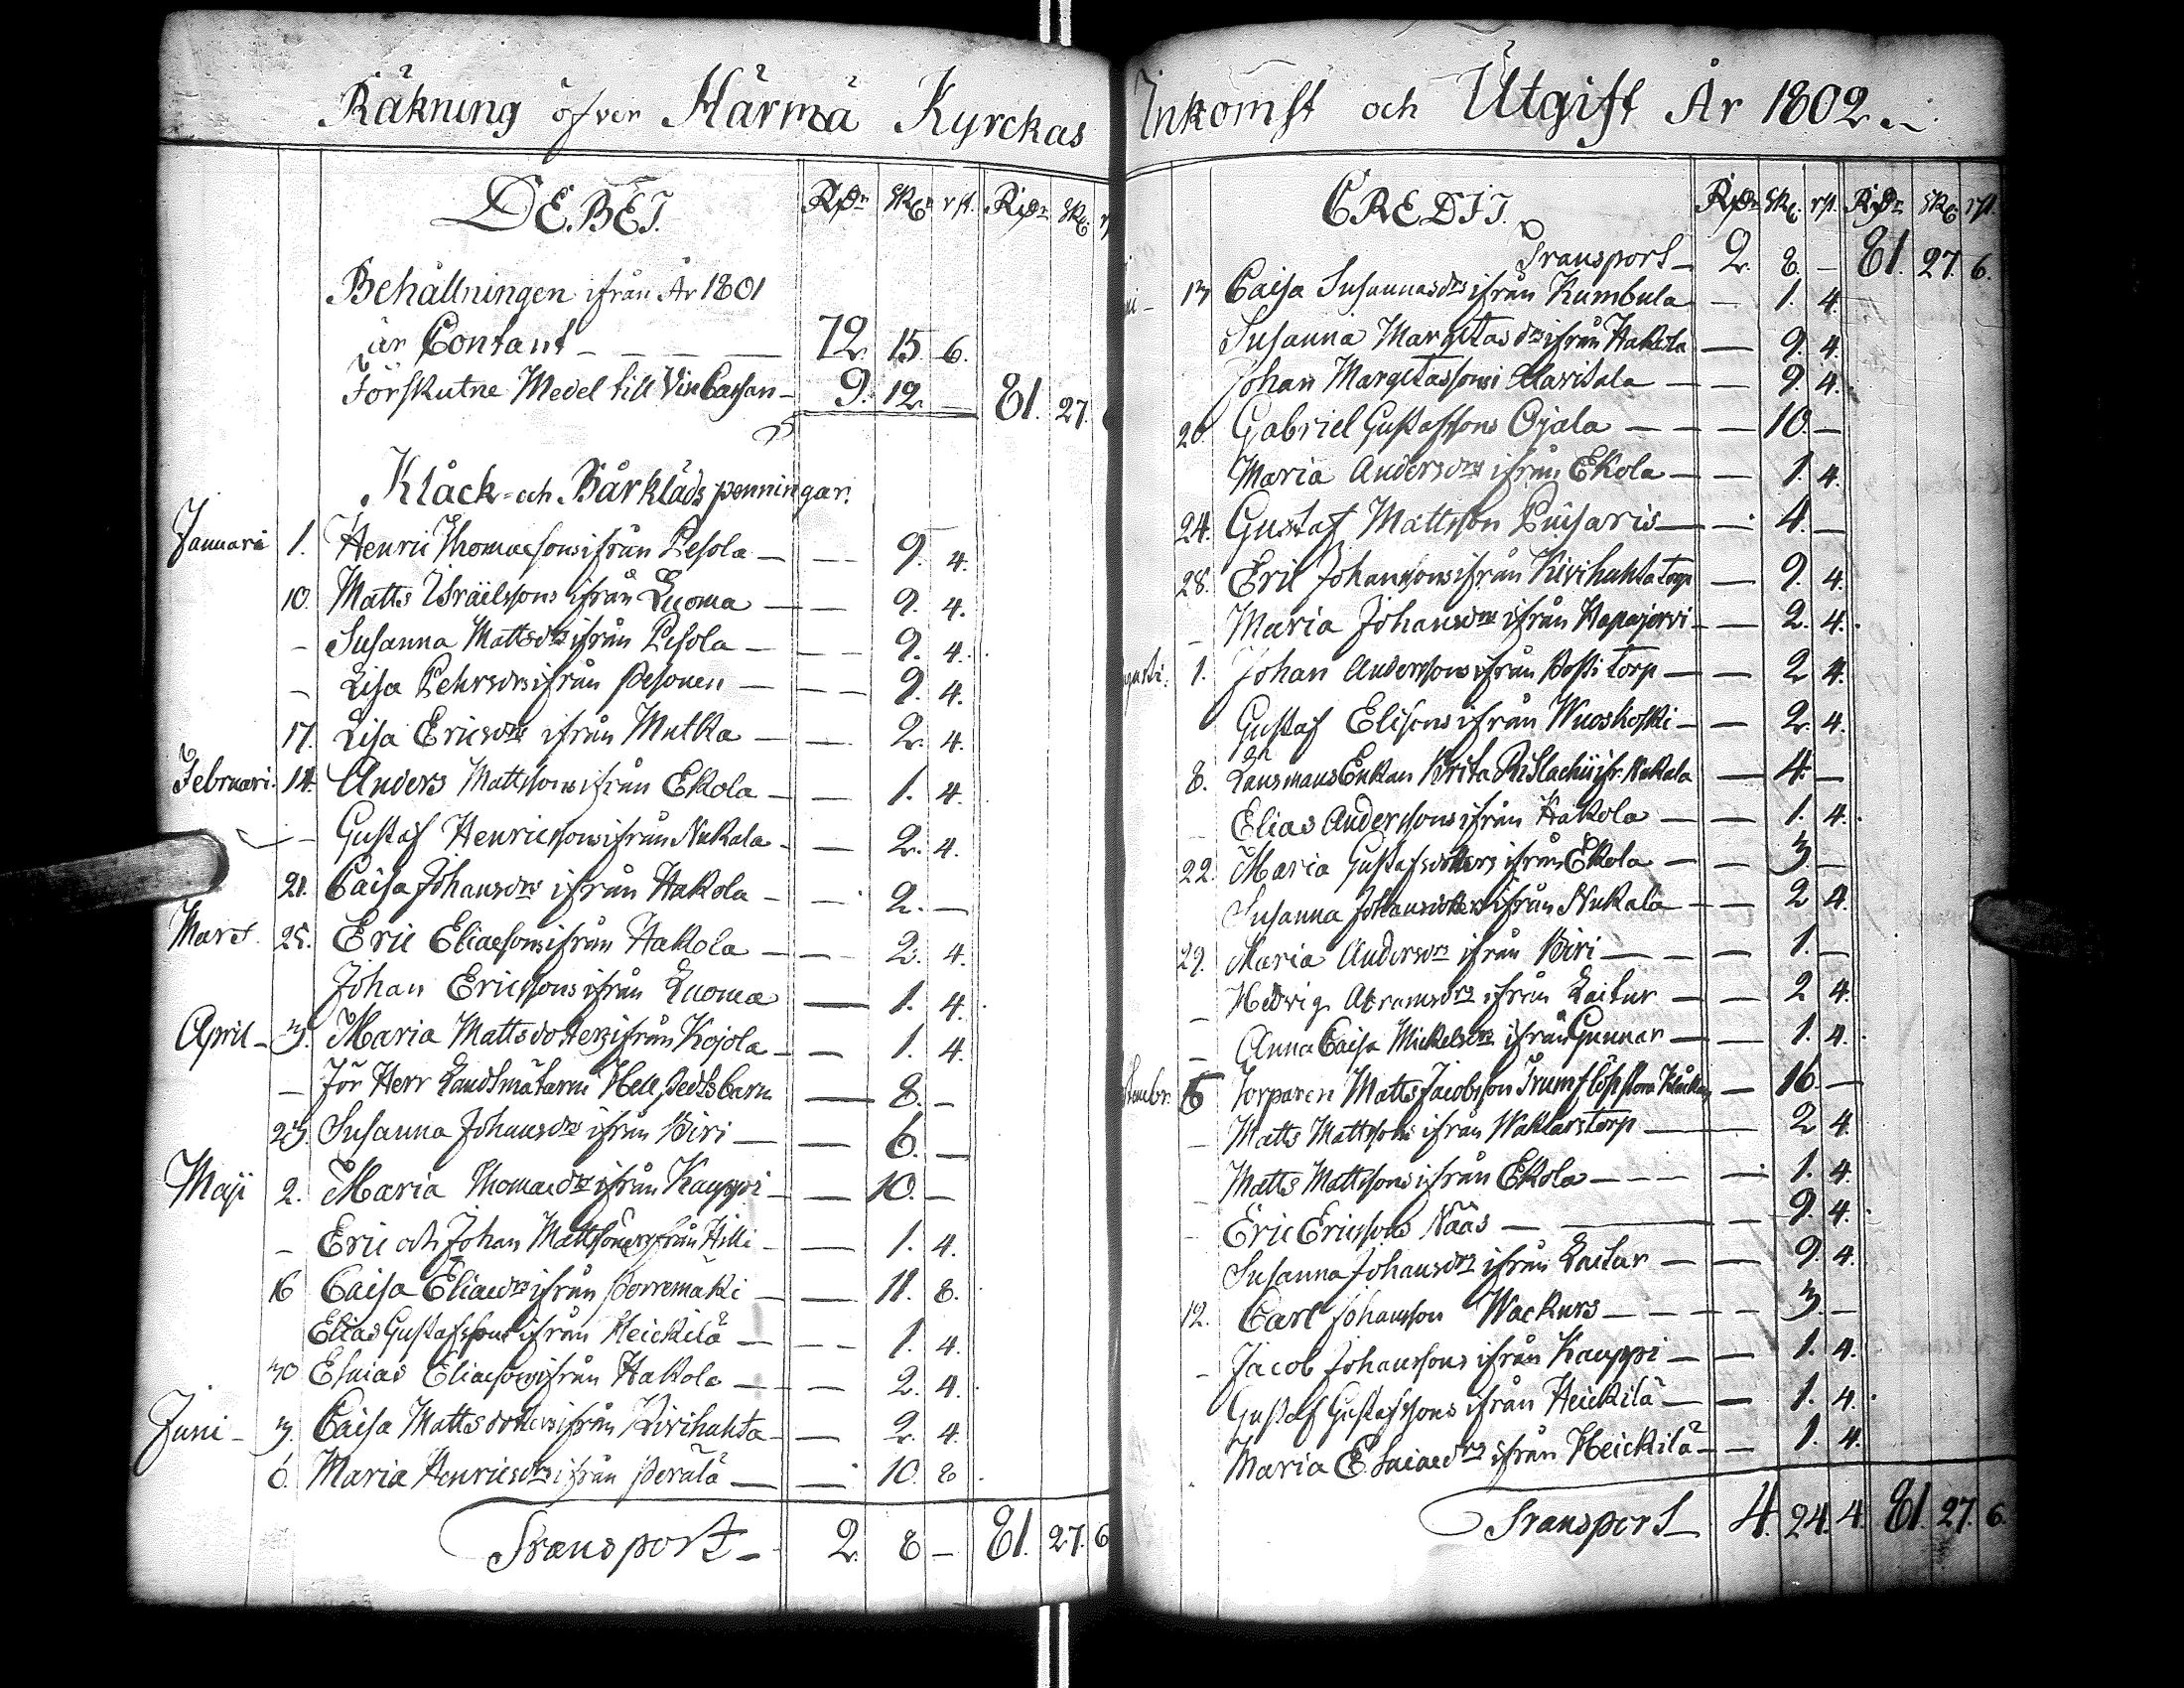 Räkning öfver Härmä Kyrckas
DEBET. Rdr Sk: rst. Rdr Sk:
Behållningen ifrån År 1801
är Contant - - - 72. 15. 6.
Förskutne Medel till Vin Cassan - 9. 12. - 81. 27.
Klåck- och Bårkläds penningar.
Januarii 1. Henric Thomaesons ifrån Pesola - - 9. 4.
10. Matts Israelssons ifrån Luoma - - 9. 4.
- Susanna Mattsdrs ifrån Pesola - - 9. 4.
- Lisa Pehrsdrs ifrån Pesonen - - 9. 4.
17. Lisa Ericsdrs ifrån Mutka - - 2. 4.
Februari. 14. Anders Mattssons ifrån Ekola - - 1. 4.
- Gustaf Henricssons ifrån Nukala - - 2. 4.
21. Caisa Johansdrs ifrån Hakola - - 2. -
Mart. 25. Eric Eliaesons ifrån Hakola - - 2. 4.
Johan Ericssons ifrån Luoma - 1. 4.
April - 3. Maria Mattsdotters ifrån Kojola - - 1. 4.
- För Herr Landtmätarne Hell, barn - 8. -
23. Susanna Johansdrs ifrån Biri - - 6. -
Maji 2. Maria Thomaedrs ifrån Kauppi - - 10. -
- Eric och Johan Mattssöners ifrån Hilli - - 1. 4.
16 Caisa Eliaedrs ifrån Porremäki - - 11. 8.
Elias Gustafssons ifrån Heickilä - - 1. 4.
30 Esaias Eliaesons ifrån Hakola - - 2. 4.
Juni - 3. Caisa Mattsdotters ifrån Kivihuhta - - 2. 4.
6. Maria Henricsdrs ifrån Perälä - - 10. 8.
Transport - 2. 8. - 81. 27. 6
Inkomst och Utgift År 1802.
CREDIT. Rdr Sk: rst. Rdr Sk: rst.
Transport - 2. 8. - 81. 27. 6.
13 Caisa Susannasdrs ifrån Kumbula - 1. 4.
Susanna Margetasdrs ifrån Hakola - 9. 4.
Johan Margetassons i Maritala - - 9. 4.
20. Gabriel Gustafssons Ojala - - - 10. -
Maria Andersdrs ifrån Ekola - - 1. 4.
24. Gustaf Mattsson - - 4. -
28. Eric Johanssons ifrån Kivihuhta torp - 9. 4.
- Maria Johansdrs ifrån Haparjervi - - 2. 4.
gusti. 1. Johan Anderssons ifrån Possi torp - - 2 4.
Gustaf Elisons ifrån Wuoskoski - - 2. 4.
8. Länsmans Enkan Brita ifr. Nukala - 4. -
- Elias Anderssons ifrån Hakola - - 1. 4.
22. Maria Gustafsdotters ifrån Ekola - - 3. -
Susanna Johansdotters ifrån Nukala - - 2 4.
29. Maria Andersdrs ifrån Biri - - - 1. -
- Hedvig Abramsdrs ifrån Laitur - - 2 4.
- Anna Caisa Mickelsdrs ifrån Gunnar - - 1. 4.
tembr. 5 Torparen Matts Jacobsson Trumflöjt stora Klåckan - 16. -
- Matts Mattssons ifrån Waktarstorp - 2 4.
- Matts Mattssons ifrån Ekola - - - 1. 4.
- Eric Ericssons Näas - - 9. 4.
Susanna Johansdrs ifrån Laitur - - 9. 4.
12. Carl Johansson Wackurs - - - 3. -
- Jacob Johanssons ifrån Kauppi - - 1. 4.
Gustaf Gustafssons ifrån Heickilä - - 1. 4.
Maria Esaiaedrs ifrån Heickilä - - 1. 4.
Transport - 4. 24. 4. 81. 27. 6.